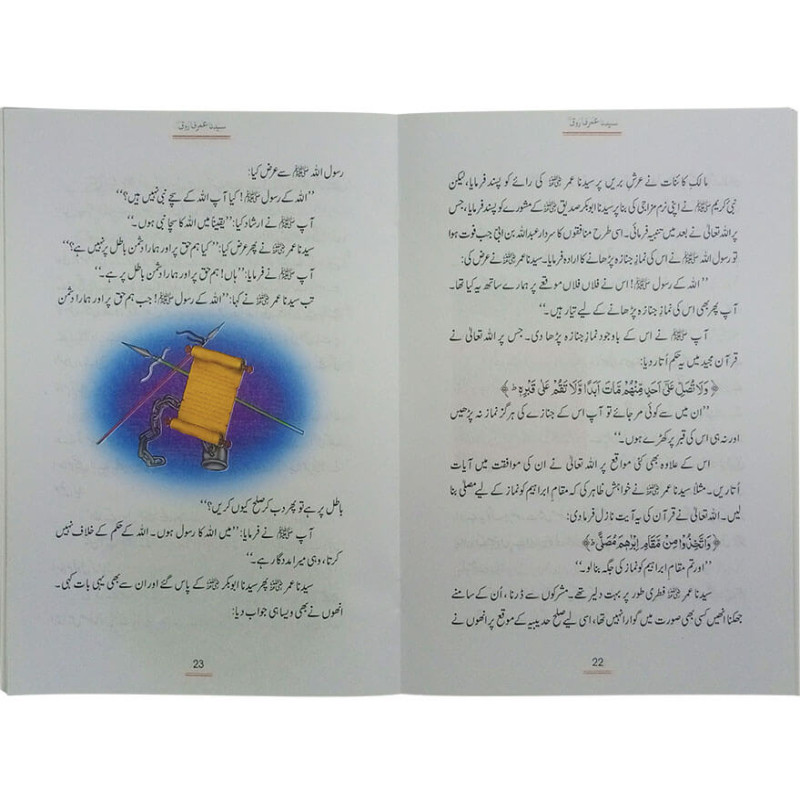 سیدنا عمر فاروقؓ
مالک کائنات نے عرشِ بریں پر سیدنا عمر ؓ کی رائے کو پسند فرمایا، لیکن
نبی کریم ﷺ نے اپنی نرم مزاجی کی بنا پر سیدنا ابوبکر صدیق ؓ کے مشورے کو پسند فرمایا، جس
پر اللہ تعالیٰ نے بعد میں تنبیہ فرمائی۔ اسی طرح منافقوں کا سردار عبداللہ بن ابی جب فوت ہوا
تو رسول اللہ ﷺ نے اس کی نماز جنازہ پڑھانے کا ارادہ فرمایا۔ سیدنا عمر ؓ نے عرض کی:
’’اللہ کے رسول ﷺ! اس نے فلاں فلاں موقعے پر ہمارے ساتھ یہ کیا تھا۔
آپ پھر بھی اس کی نماز جنازہ پڑھانے کے لیے تیار ہیں۔‘‘
آپ ﷺ نے اس کے باوجود نماز جنازہ پڑھا دی۔ جس پر اللہ تعالیٰ نے
قرآن مجید میں یہ حکم اُتار دیا:
﴿وَلَا تُصَلِّ عَلٰٓى اَحَدٍ مِّنْهُمْ مَّاتَ اَبَدًا وَّلَا تَقُمْ عَلٰى قَبْرِهٖ ؕ﴾
’’ان میں سے کوئی مر جائے تو آپ اس کے جنازے کی ہرگز نماز نہ پڑھیں
اور نہ ہی اس کی قبر پر کھڑے ہوں۔‘‘
اس کے علاوہ بھی کئی مواقع پر اللہ تعالیٰ نے ان کی موافقت میں آیات
اُتاریں۔ مثلاً سیدنا عمر ؓ نے خواہش ظاہر کی کہ مقام ابراہیم کو نماز کے لیے مصلّٰی بنا
لیں۔ اللہ تعالیٰ نے قرآن کی یہ آیت نازل فرما دی:
﴿وَاتَّخِذُوْا مِنْ مَّقَامِ اِبْرٰهٖمَ مُصَلًّى ؕ﴾
’’اور تم مقام ابراہیم کو نماز کی جگہ بنا لو۔‘‘
سیدنا عمر ؓ فطری طور پر بہت دلیر تھے۔ مشرکوں سے ڈرنا، اُن کے سامنے
جھکنا انھیں کسی بھی صورت میں گوارا نہیں تھا، اسی لیے صلح حدیبیہ کے موقع پر انھوں نے
22
سیدنا عمر فاروقؓ
رسول اللہ ﷺ سے عرض کیا:
’’اللہ کے رسول ﷺ! کیا آپ اللہ کے سچے نبی نہیں ہیں؟‘‘
آپ ﷺ نے ارشاد کیا: ’’یقیناً میں اللہ کا سچا نبی ہوں۔‘‘
سیدنا عمر ؓ نے پھر عرض کیا: ’’کیا ہم حق پر اور ہمارا دشمن باطل پر نہیں ہے؟‘‘
آپ ﷺ نے فرمایا: ’’ہاں! ہم حق پر اور ہمارا دشمن باطل پر ہے۔‘‘
تب سیدنا عمر ؓ نے کہا: ’’اللہ کے رسول ﷺ! جب ہم حق پر اور ہمارا دشمن
باطل پر ہے تو پھر دب کر صلح کیوں کریں؟‘‘
آپ ﷺ نے فرمایا: ’’میں اللہ کا رسول ہوں۔ اللہ کے حکم کے خلاف نہیں
کرتا، وہی میرا مددگار ہے۔‘‘
سیدنا عمر ؓ پھر سیدنا ابوبکر ؓ کے پاس گئے اور ان سے بھی یہی بات کہی۔
انھوں نے بھی ویسا ہی جواب دیا:
23